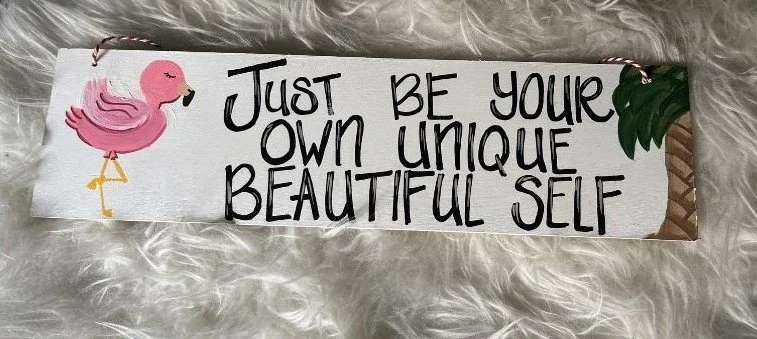 JUST BE YOUR
OWN UNIQUE
BEAUTIFUL SELF